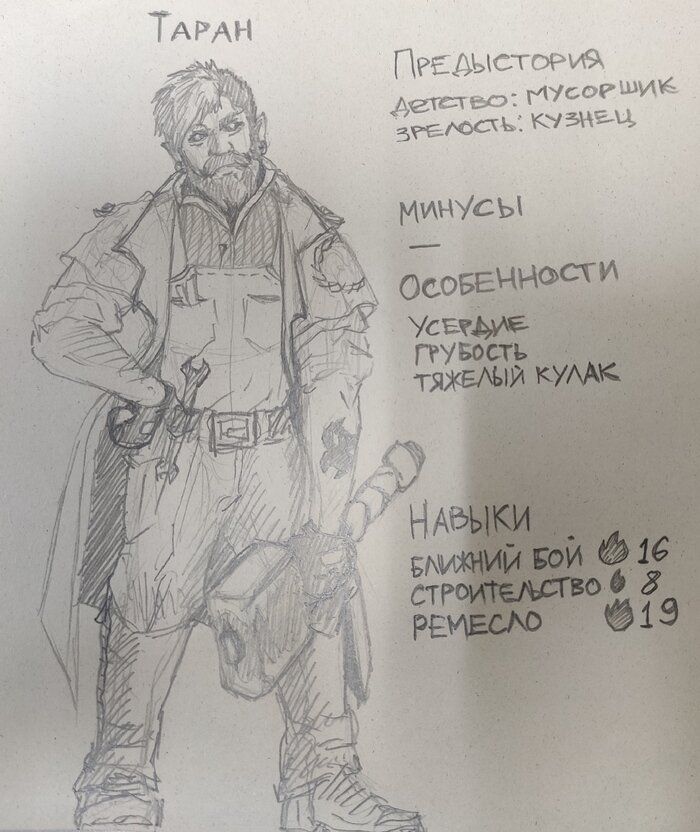 ТАРАН
ПРЕДЫСТОРИЯ
ДЕТСТВО: МУСОРЩИК
ЗРЕЛОСТЬ: КУЗНЕЦ
МИНУСЫ
—
ОСОБЕННОСТИ
УСЕРДИЕ
ГРУБОСТЬ
ТЯЖЕЛЫЙ КУЛАК
НАВЫКИ
БЛИЖНИЙ БОЙ 16
СТРОИТЕЛЬСТВО 8
РЕМЕСЛО 19